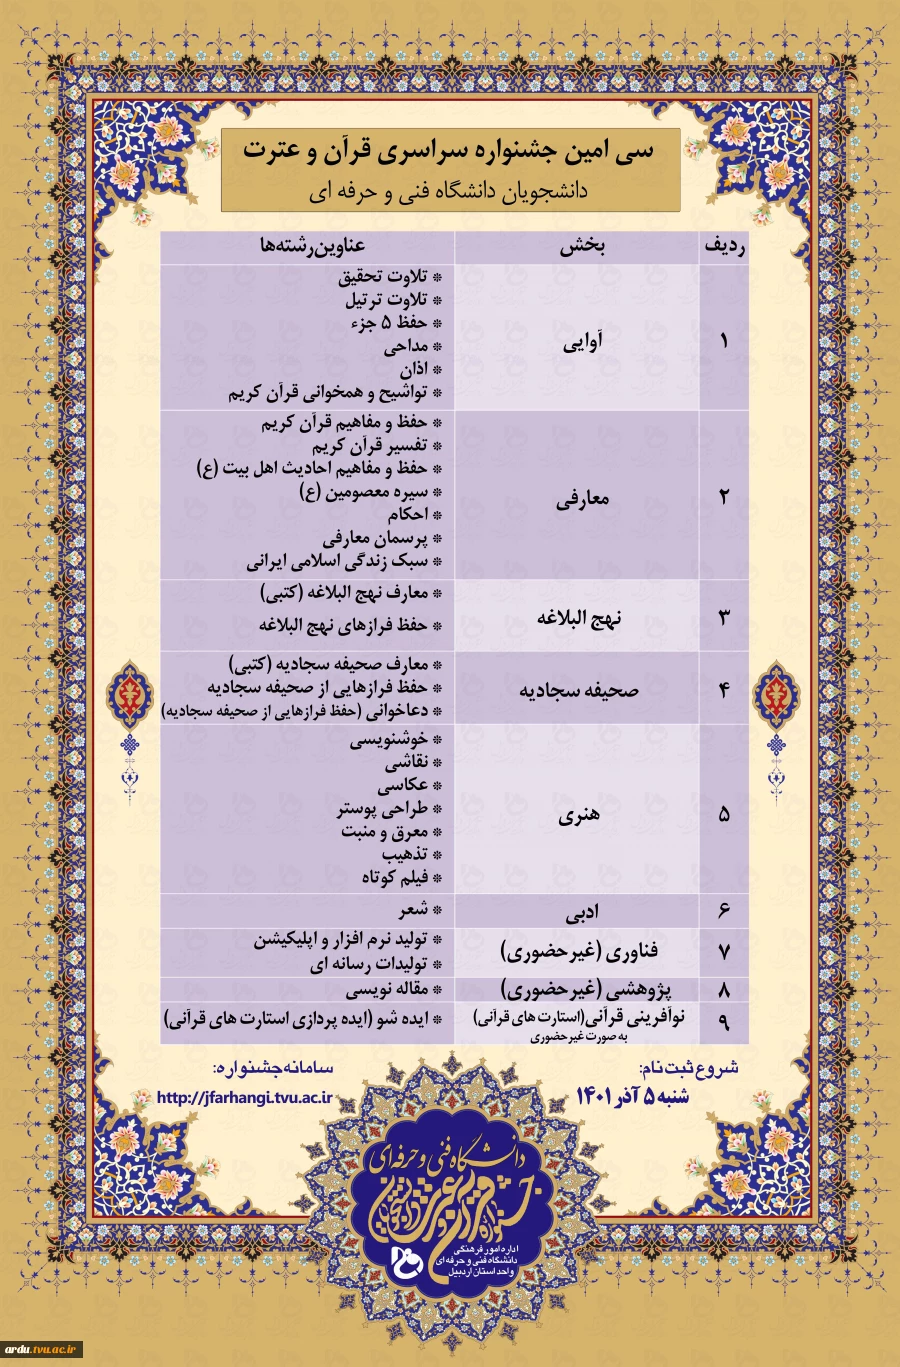 سی امین جشنواره سراسری قرآن و عترت
دانشجویان دانشگاه فنی و حرفه ای
ردیف بخش عناوین‌رشته‌ها
۱ آوایی
* تلاوت تحقیق
* تلاوت ترتیل
* حفظ ۵ جزء
* مداحی
* اذان
* تواشیح و همخوانی قرآن کریم
۲ معارفی
* حفظ و مفاهیم قرآن کریم
* تفسیر قرآن کریم
* حفظ و مفاهیم احادیث اهل بیت (ع)
* سیره معصومین (ع)
* احکام
* پرسمان معارفی
* سبک زندگی اسلامی ایرانی
۳ نهج البلاغه
* معارف نهج البلاغه (کتبی)
* حفظ فرازهای نهج البلاغه
۴ صحیفه سجادیه
* معارف صحیفه سجادیه (کتبی)
* حفظ فرازهایی از صحیفه سجادیه
* دعاخوانی (حفظ فرازهایی از صحیفه سجادیه)
۵ هنری
* خوشنویسی
* نقاشی
* عکاسی
* طراحی پوستر
* معرق و منبت
* تذهیب
* فیلم کوتاه
۶ ادبی
* شعر
۷ فناوری (غیرحضوری)
* تولید نرم افزار و اپلیکیشن
* تولیدات رسانه ای
۸ پژوهشی (غیرحضوری)
* مقاله نویسی
۹ نوآفرینی قرآنی(استارت های قرآنی)
به صورت غیرحضوری
* ایده شو (ایده پردازی استارت های قرآنی)
شروع ثبت نام:
شنبه ۵ آذر ۱۴۰۱
سامانه جشنواره:
http://jfarhangi.tvu.ac.ir
دانشگاه فنی و حرفه ای
جشنواره قرآن و عترت دانشجویان
اداره امور فرهنگی
دانشگاه فنی و حرفه ای
واحد استان اردبیل
ardu.tvu.ac.ir